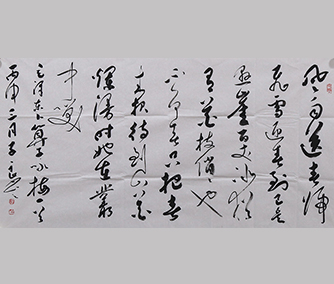 风雨送春归
飞雪迎春到已是
悬崖百丈冰犹
有花枝俏俏也
不争春只把春
来报待到山花
爛漫时她在叢
中笑
毛泽东卜算子咏梅一首
丙申